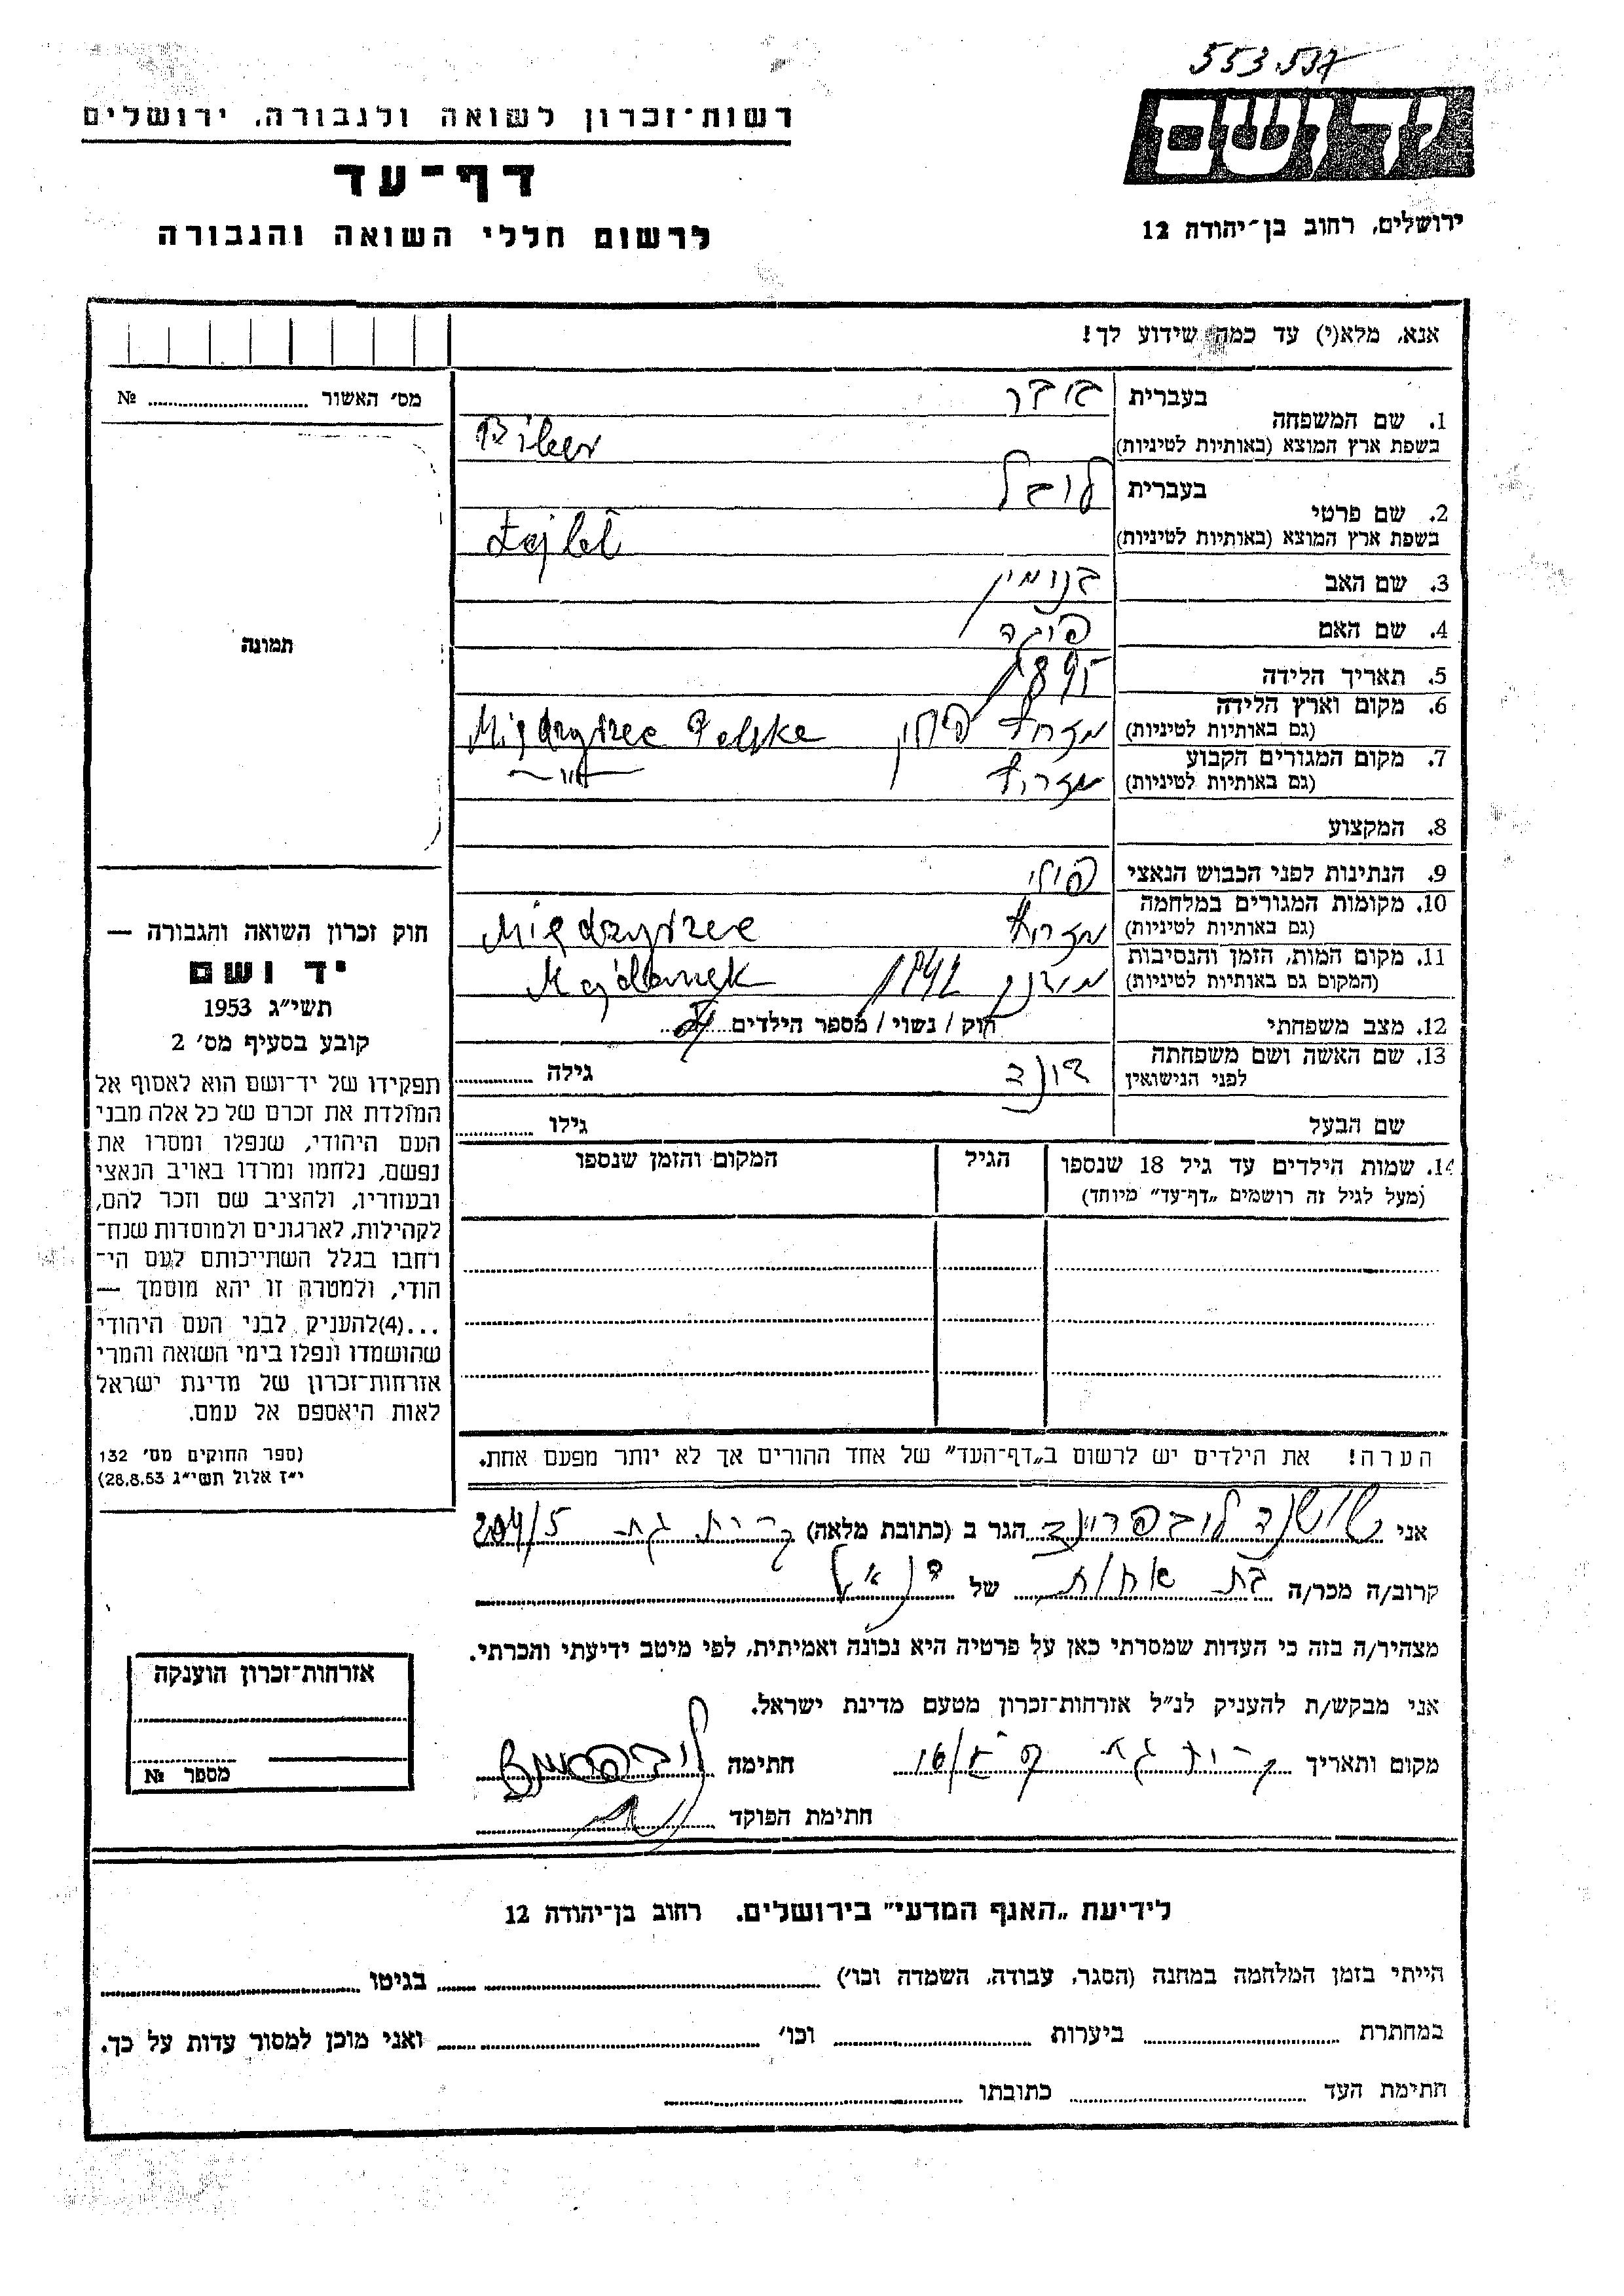 553.537
יד ושם
רשות־זכרון לשואה ולגבורה, ירושלים
דף־עד
לרשום חללי השואה והגבורה
ירושלים, רחוב בן־יהודה 12
אנא, מלא(י) עד כמה שידוע לך!
מס׳ האשור № 
1. שם המשפחה
בעברית
בשפת ארץ המוצא (באותיות לטיניות)
2. שם פרטי
בעברית
בשפת ארץ המוצא (באותיות לטיניות)
Łajbl
3. שם האב
4. שם האם
5. תאריך הלידה 1895
6. מקום וארץ הלידה (גם באותיות לטיניות) מזריץ פולין Międzyrzec Polska
7. מקום המגורים הקבוע (גם באותיות לטיניות) מזריץ
8. המקצוע
9. הנתינות לפני הכבוש הנאצי פולני
10. מקומות המגורים במלחמה (גם באותיות לטיניות) מזריץ Międzyrzec
11. מקום המות, הזמן והנסיבות (המקום גם באותיות לטיניות) מידנק 1942 Majdanek
12. מצב משפחתי רוק / נשוי / מספר הילדים
13. שם האשה ושם משפחתה לפני הנישואין
גילה
שם הבעל
גילו
14. שמות הילדים עד גיל 18 שנספו (מעל לגיל זה רושמים „דף־עד” מיוחד)
הגיל
המקום והזמן שנספו
הערה! את הילדים יש לרשום ב„דף־העד” של אחד ההורים אך לא יותר מפעם אחת.
תמונה
חוק זכרון השואה והגבורה —
יד ושם
תשי״ג 1953
קובע בסעיף מס׳ 2
תפקידו של יד־ושם הוא לאסוף אל
המולדת את זכרם של כל אלה מבני
העם היהודי, שנפלו ומסרו את
נפשם, נלחמו ומרדו באויב הנאצי
ובעוזריו, ולהציב שם וזכר להם,
לקהילות, לארגונים ולמוסדות שנח־
רחבו בגלל השתייכותם לעם הי־
הודי, ולמטרה זו יהא מוסמך —
...(4)להעניק לבני העם היהודי
שהושמדו ונפלו בימי השואה והמרי
אזרחות־זכרון של מדינת ישראל
לאות היאספם אל עמם.
(ספר החוקים מס׳ 132
י״ז אלול תשי״ג 28.8.53)
אני שושנה הגר ב (כתובת מלאה) קרית גת 204/5
קרוב/ה מכר/ה בת אחות של
מצהיר/ה בזה כי העדות שמסרתי כאן על פרטיה היא נכונה ואמיתית, לפי מיטב ידיעתי והכרתי.
אני מבקש/ת להעניק לנ״ל אזרחות־זכרון מטעם מדינת ישראל.
מקום ותאריך קרית גת חתימה
חתימת הפוקד
אזרחות־זכרון הוענקה
מספר №
לידיעת „האגף המדעי” בירושלים. רחוב בן־יהודה 12
הייתי בזמן המלחמה במחנה (הסגר, עבודה, השמדה וכו׳) בגיטו
במחתרת ביערות וכו׳ ואני מוכן למסור עדות על כך.
חתימת העד כתובתו